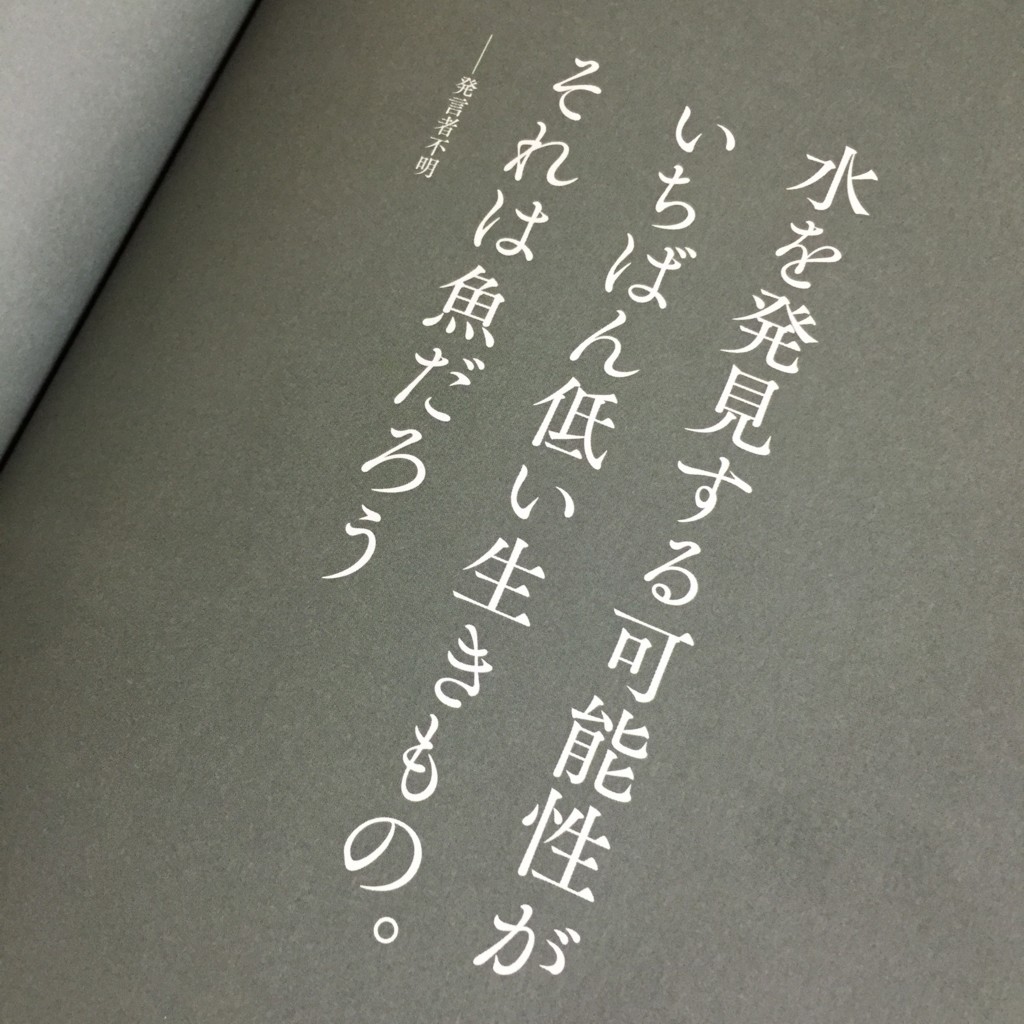 水を発見する可能性が
いちばん低い生きもの。
それは魚だろう
──発言者不明